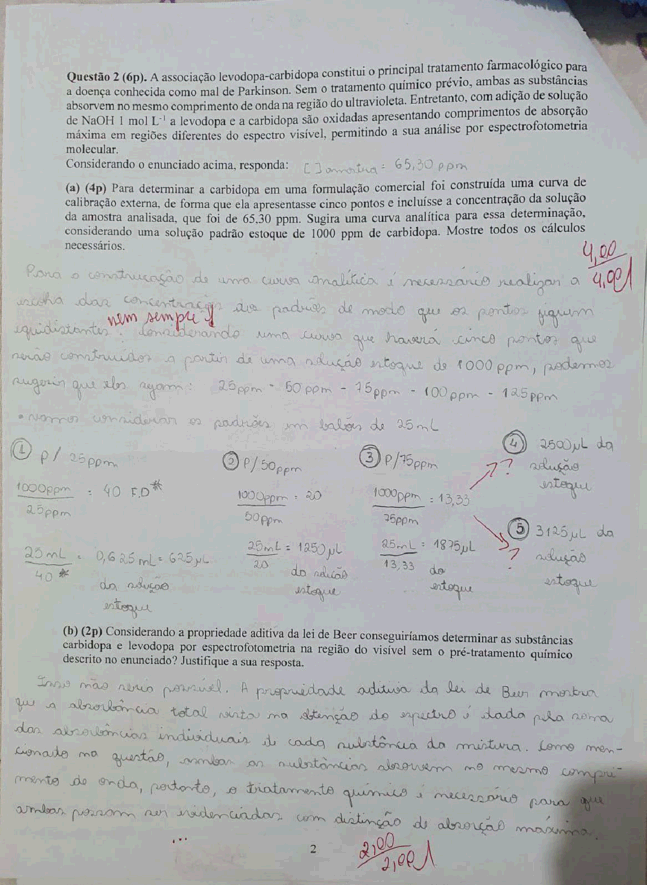 Questão 2 (6p). A associação levodopa-carbidopa constitui o principal tratamento farmacológico para
a doença conhecida como mal de Parkinson. Sem o tratamento químico prévio, ambas as substâncias
absorvem no mesmo comprimento de onda na região do ultravioleta. Entretanto, com adição de solução
de NaOH 1 mol L⁻¹ a levodopa e a carbidopa são oxidadas apresentando comprimentos de absorção
máxima em regiões diferentes do espectro visível, permitindo a sua análise por espectrofotometria
molecular.
Considerando o enunciado acima, responda: [ ] amostra = 65,30 ppm
(a) (4p) Para determinar a carbidopa em uma formulação comercial foi construída uma curva de
calibração externa, de forma que ela apresentasse cinco pontos e incluísse a concentração da solução
da amostra analisada, que foi de 65,30 ppm. Sugira uma curva analítica para essa determinação,
considerando uma solução padrão estoque de 1000 ppm de carbidopa. Mostre todos os cálculos
necessários.
4,00
4,00
Para a construcação de uma curva analítica é necessário realizar a
escolha das concentrações dos padrões de modo que os pontos fiquem
equidistantes. Considerando uma curva que haverá cinco pontos que
nem sempre!
serão construídos a partir de uma solução estoque de 1000 ppm, podemos
sugerir que eles sejam: 25ppm - 50ppm - 75ppm - 100ppm - 125ppm
• vamos considerar os padrões em balões de 25mL
① p/ 25ppm
1000ppm = 40 F.D*
25ppm
25mL = 0,625mL = 625µL
40*
da solução
estoque
② P/50ppm
1000ppm = 20
50ppm
25mL = 1250µL
20
da solução
estoque
③ P/75ppm
1000ppm = 13,33
75ppm
25mL = 1875µL
13,33 da
estoque
④ 2500µL da
solução
estoque
?
⑤ 3125µL da
solução
estoque
?
(b) (2p) Considerando a propriedade aditiva da lei de Beer conseguiríamos determinar as substâncias
carbidopa e levodopa por espectrofotometria na região do visível sem o pré-tratamento químico
descrito no enunciado? Justifique a sua resposta.
Isso não seria possível. A propriedade aditiva da lei de Beer mostra
que a absorbância total vista na obtenção do espectro é dada pela soma
das absorbâncias individuais de cada substância da mistura. Como men-
cionado na questão, ambas as substâncias absorvem no mesmo compri-
mento de onda, portanto, o tratamento químico é necessário para que
ambas possam ser evidenciadas com distinção de absorção máxima.
...
2
2,00
2,00